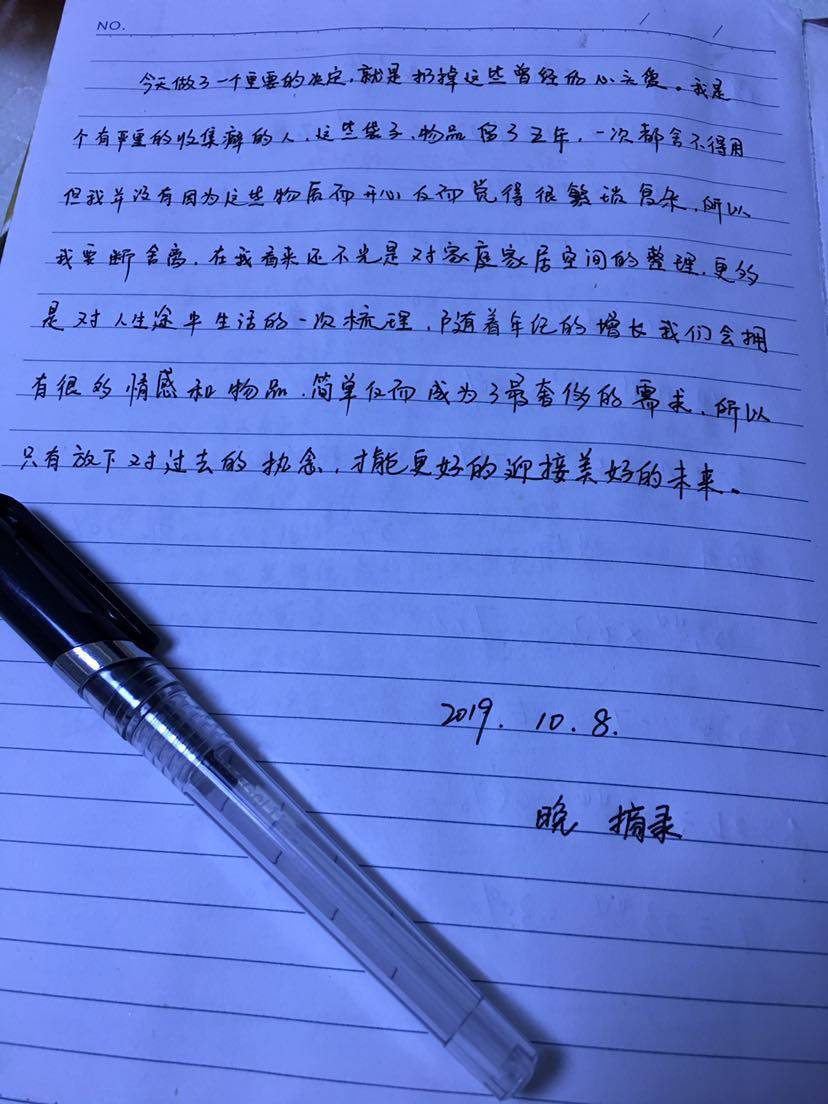 NO.
今天做了一个重要的决定,就是扔掉这些曾经的心头爱。我是
个有严重的收集癖的人,这些袋子、物品留了五年,一次都舍不得用
但我并没有因为这些物质而开心反而觉得很繁琐复杂,所以
我要断舍离,在我看来还不光是对家庭家居空间的整理,更多的
是对人生途中生活的一次梳理,随着年纪的增长我们会拥
有很多情感和物品,简单反而成为了最奢侈的需求,所以
只有放下对过去的执念,才能更好的迎接美好的未来。
2019. 10. 8.
晚 摘录